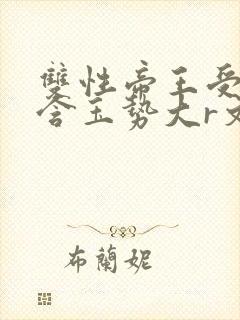 雙性帝王受
含玉勢大r文
布蘭妮